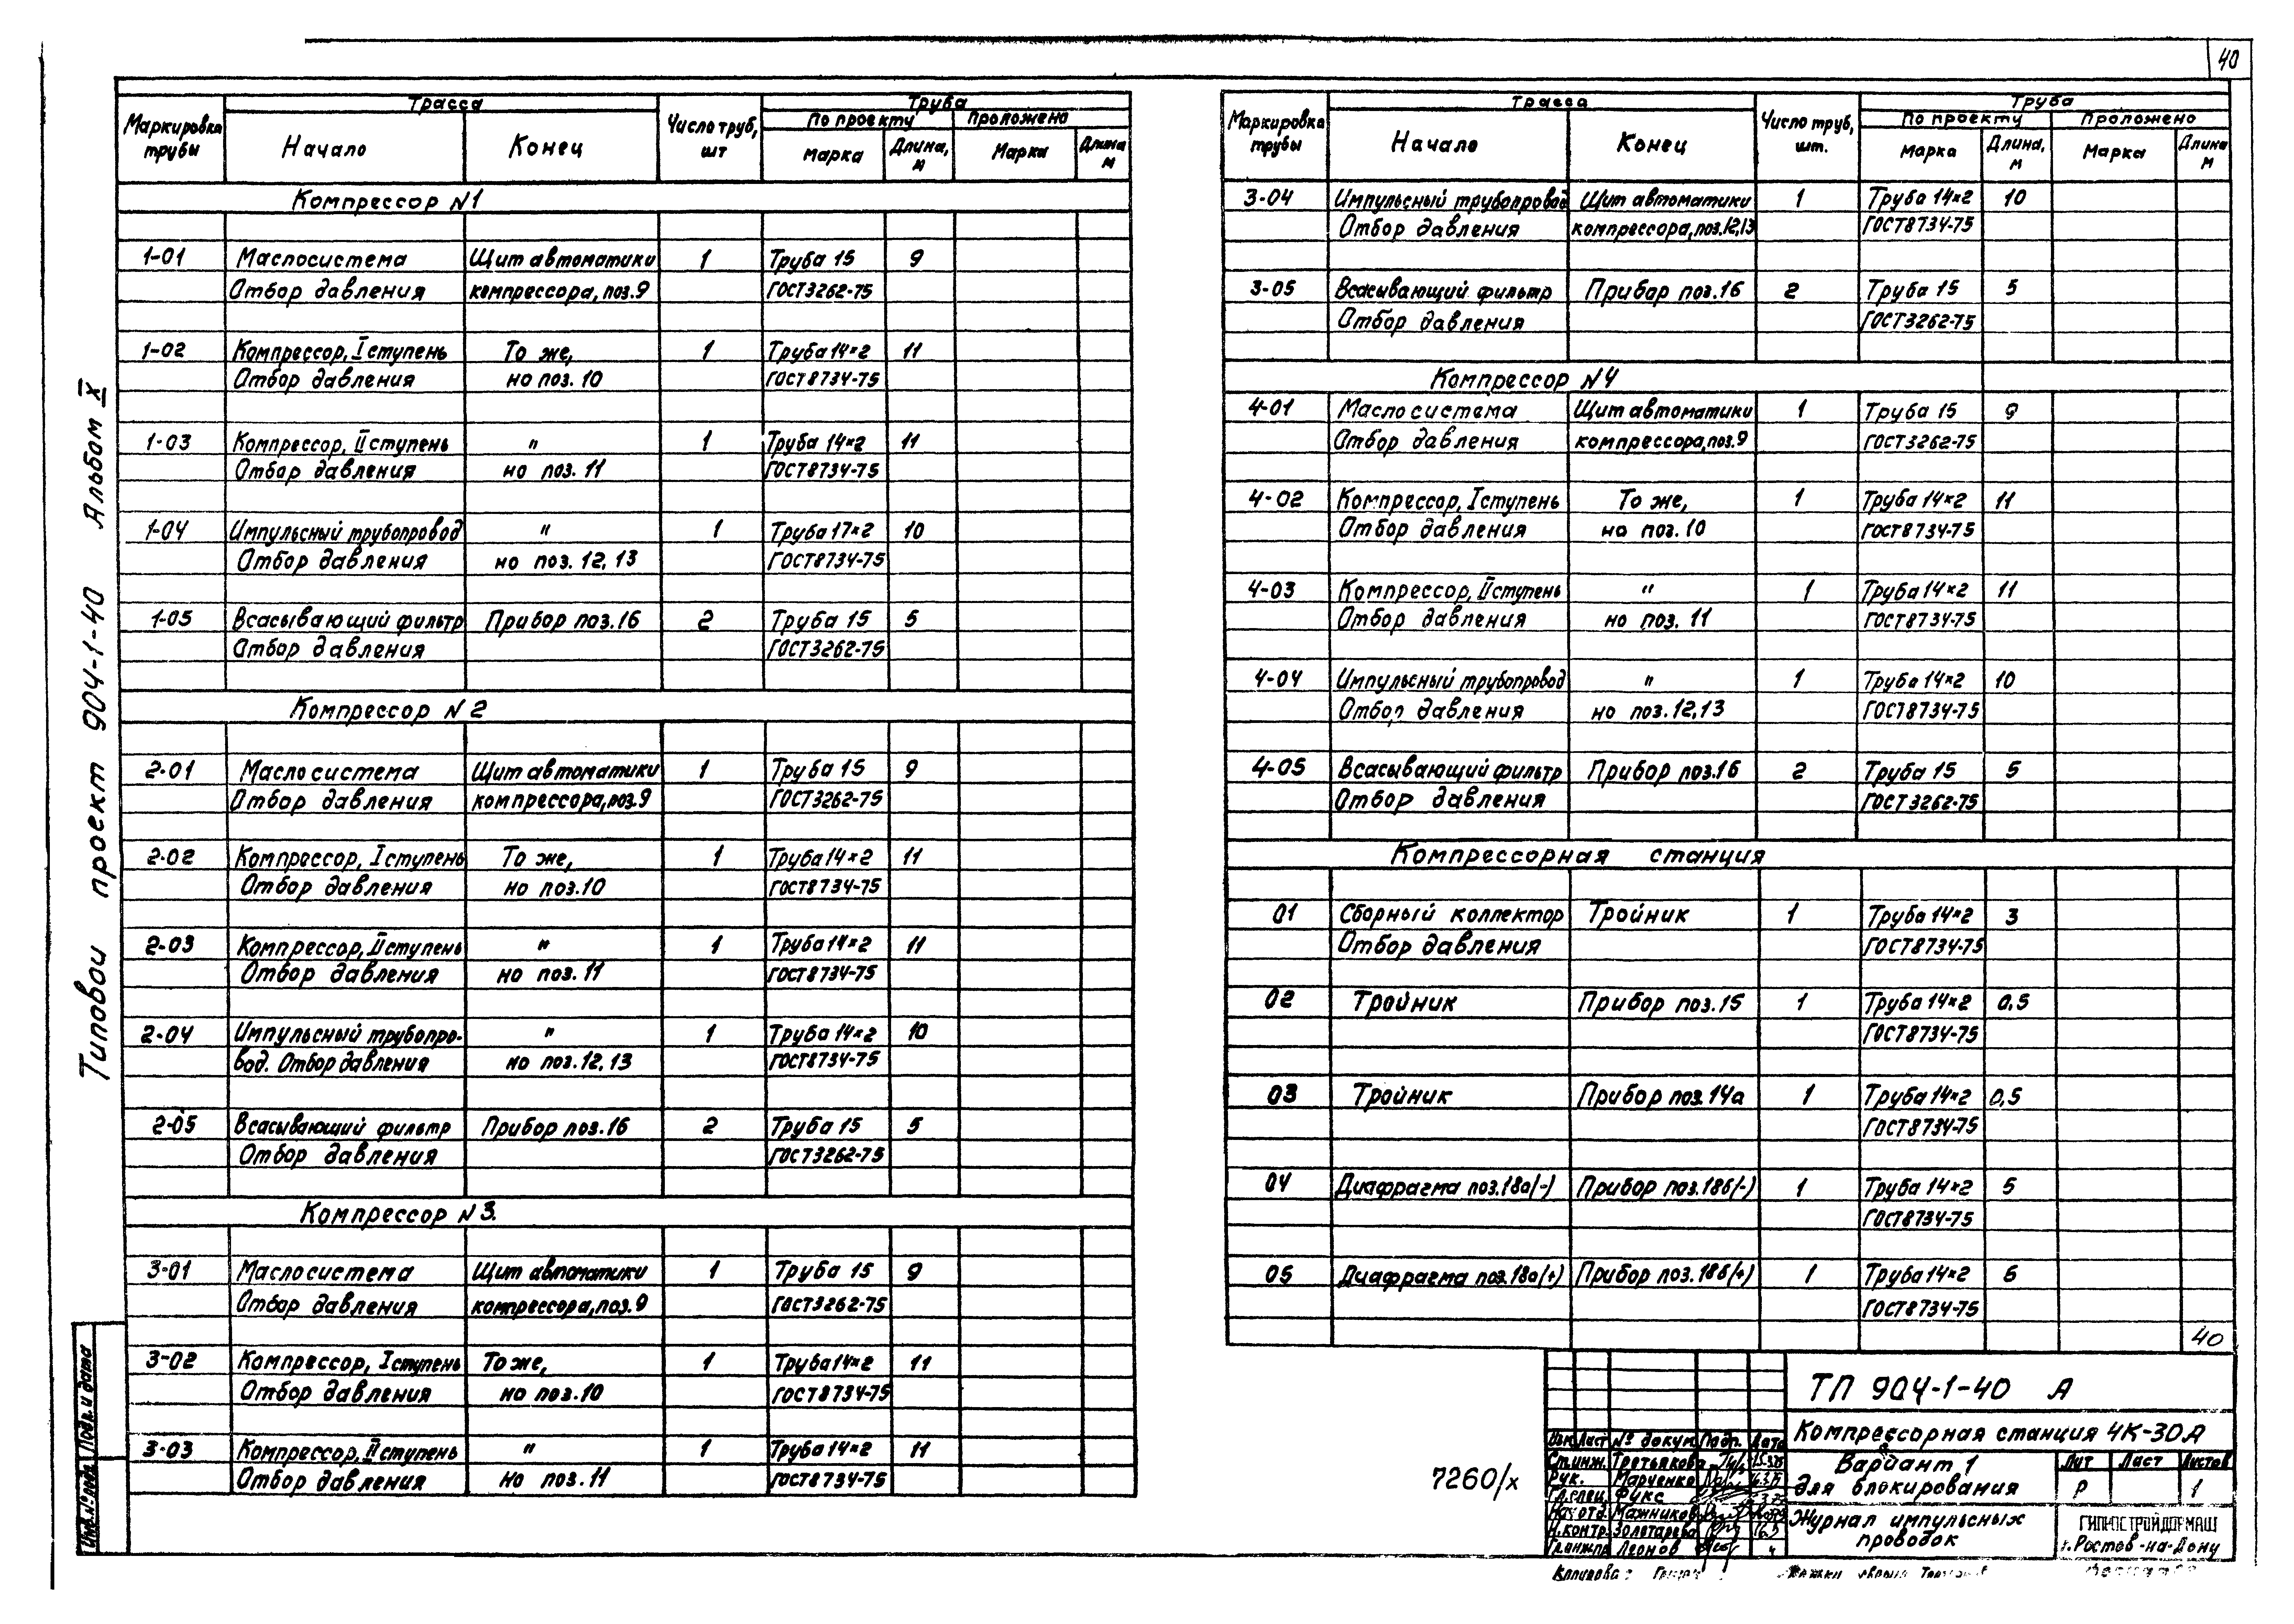 40
Типовой проект 904-1-40 Альбом X
Маркировка трубы Трасса Число труб, шт Труба
По проекту Проложено
Начало Конец Марка Длина, м Марка Длина м
Компрессор N1
1-01 Маслосистема Щит автоматики 1 Труба 15 9
Отбор давления компрессора, поз.9 ГОСТ3262-75
1-02 Компрессор, I ступень То же, 1 Труба 14×2 11
Отбор давления но поз. 10 ГОСТ8734-75
1-03 Компрессор, II ступень " 1 Труба 14×2 11
Отбор давления но поз. 11 ГОСТ8734-75
1-04 Импульсный трубопровод " 1 Труба 17×2 10
Отбор давления но поз. 12, 13 ГОСТ8734-75
1-05 Всасывающий фильтр Прибор поз.16 2 Труба 15 5
Отбор давления ГОСТ3262-75
Компрессор N 2
2-01 Маслосистема Щит автоматики 1 Труба 15 9
Отбор давления компрессора, поз.9 ГОСТ3262-75
2-02 Компрессор, I ступень То же, 1 Труба 14×2 11
Отбор давления но поз.10 ГОСТ8734-75
2-03 Компрессор, II ступень " 1 Труба 14×2 11
Отбор давления но поз. 11 ГОСТ8734-75
2-04 Импульсный трубопро- " 1 Труба 14×2 10
вод. Отбор давления но поз. 12, 13 ГОСТ8734-75
2-05 Всасывающий фильтр Прибор поз.16 2 Труба 15 5
Отбор давления ГОСТ3262-75
Компрессор N 3.
3-01 Маслосистема Щит автоматики 1 Труба 15 9
Отбор давления компрессора, поз.9 ГОСТ3262-75
3-02 Компрессор, I ступень То же, 1 Труба 14×2 11
Отбор давления но поз.10 ГОСТ8734-75
3-03 Компрессор, II ступень " 1 Труба 14×2 11
Отбор давления но поз.11 ГОСТ8734-75
Маркировка трубы Трасса Число труб, шт. Труба
По проекту Проложено
Начало Конец Марка Длина, м Марка Длина м
3-04 Импульсный трубопровод Щит автоматики 1 Труба 14×2 10
Отбор давления компрессора, поз.12,13 ГОСТ8734-75
3-05 Всасывающий фильтр Прибор поз.16 2 Труба 15 5
Отбор давления ГОСТ3262-75
Компрессор N 4
4-01 Маслосистема Щит автоматики 1 Труба 15 9
Отбор давления компрессора, поз.9 ГОСТ3262-75
4-02 Компрессор, I ступень То же, 1 Труба 14×2 11
Отбор давления но поз.10 ГОСТ8734-75
4-03 Компрессор, II ступень " 1 Труба 14×2 11
Отбор давления но поз. 11 ГОСТ8734-75
4-04 Импульсный трубопровод " 1 Труба 14×2 10
Отбор давления но поз.12,13 ГОСТ8734-75
4-05 Всасывающий фильтр Прибор поз.16 2 Труба 15 5
Отбор давления ГОСТ3262-75
Компрессорная станция
01 Сборный коллектор Тройник 1 Труба 14×2 3
Отбор давления ГОСТ8734-75
02 Тройник Прибор поз.15 1 Труба 14×2 0,5
ГОСТ8734-75
03 Тройник Прибор поз.14а 1 Труба 14×2 0,5
ГОСТ8734-75
04 Диафрагма поз.18а(-) Прибор поз.18б(-) 1 Труба 14×2 5
ГОСТ8734-75
05 Диафрагма поз.18а(+) Прибор поз.18б(+) 1 Труба 14×2 5
ГОСТ8734-75
40
Инв. № подл. Подп. и дата
7260/х
ТП 904-1-40 А
Компрессорная станция 4К-30А
Изм Лист № докум. Подп. Дата
Ст.инж. Третьякова
Рук. Марченко
Гл.спец. Фукс
Нач.отд. Мажников
Н.контр. Золотарева
Гл.инж.пр. Леонов
Вариант 1
для блокирования
Лит Лист Листов
Р 1
Журнал импульсных
проводок
ГИПРОСТРОЙДОРМАШ
г.Ростов-на-Дону